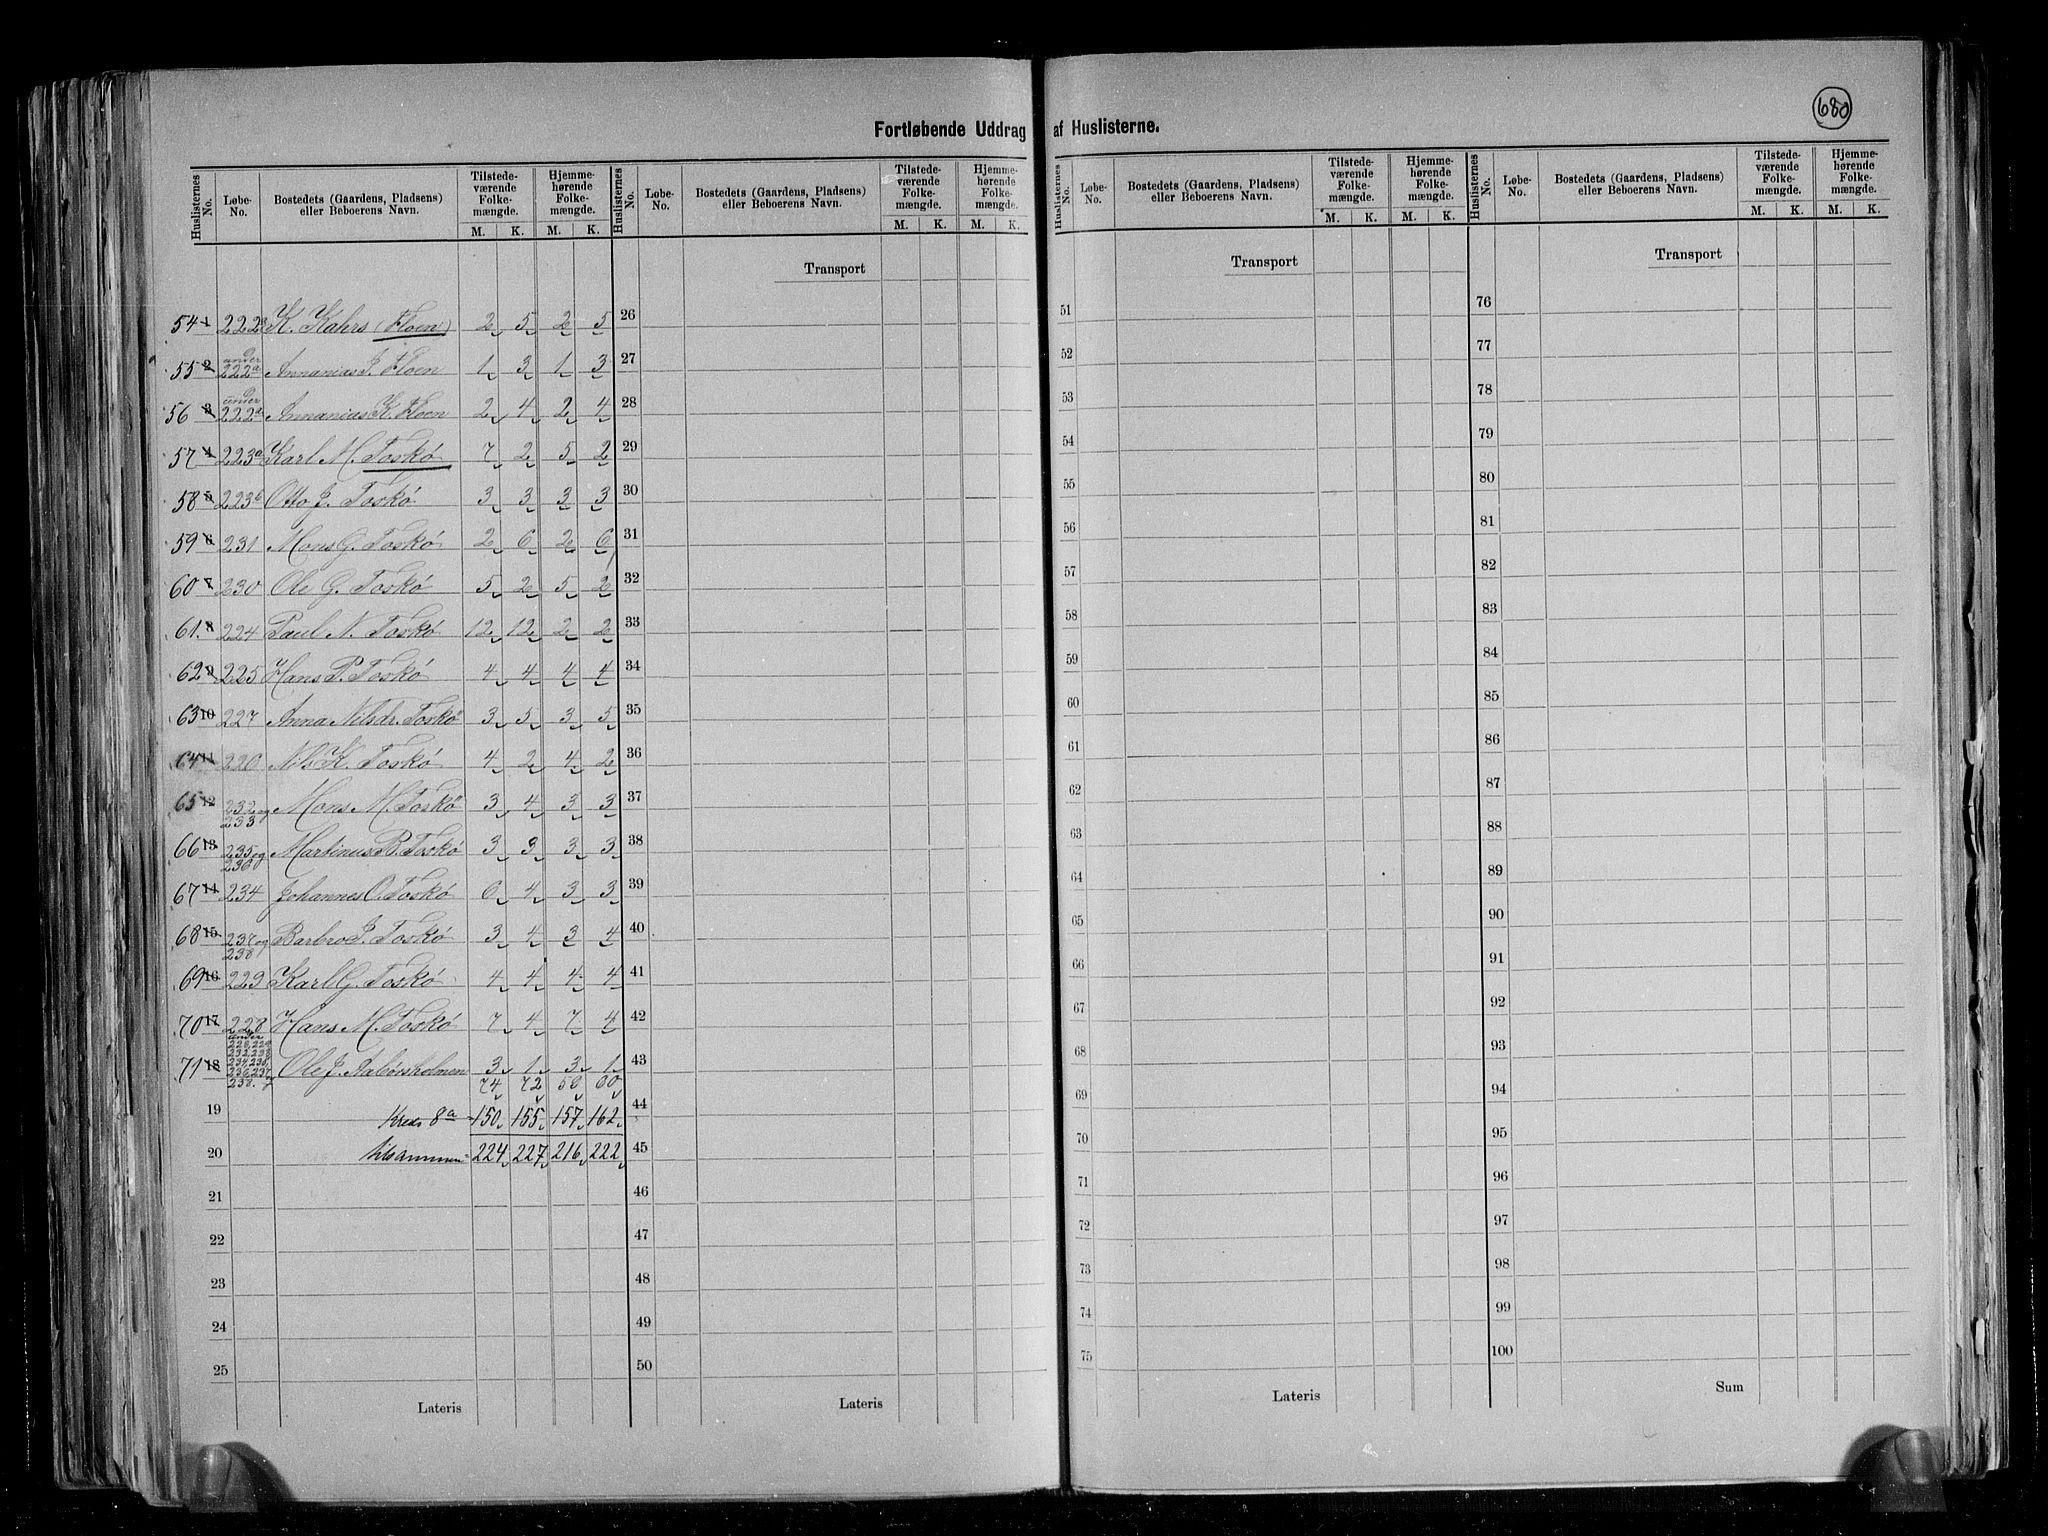 680
Fortløbende Uddrag af Huslisterne.
Huslisternes No. Løbe-No. Bostedets (Gaardens, Pladsens) eller Beboerens Navn. Tilstedeværende Folkemængde. M. K. Hjemmehørende Folkemængde. M. K.
Huslisternes No. Løbe-No. Bostedets (Gaardens, Pladsens) eller Beboerens Navn. Tilstedeværende Folkemængde. M. K. Hjemmehørende Folkemængde. M. K.
Huslisternes No. Løbe-No. Bostedets (Gaardens, Pladsens) eller Beboerens Navn. Tilstedeværende Folkemængde. M. K. Hjemmehørende Folkemængde. M. K.
Huslisternes No. Løbe-No. Bostedets (Gaardens, Pladsens) eller Beboerens Navn. Tilstedeværende Folkemængde. M. K. Hjemmehørende Folkemængde. M. K.
Transport Transport Transport
54 1 222a K. Kahrs (Floen) 2 5 2 5 26 51 76
55 2 under 222a Annanias J. Floen 1 3 1 3 27 52 77
56 3 under 222a Annanias K. Floen 2 4 2 4 28 53 78
57 4 223a Karl M. Toskö 7 2 5 2 29 54 79
58 5 223b Otto J. Toskö 3 3 3 3 30 55 80
59 6 231 Mons G. Toskö 2 6 2 6 31 56 81
60 7 230 Ole G. Toskö 5 2 5 2 32 57 82
61. 8 224 Paul N. Toskö 12 12 2 2 33 58 83
62 9 225 Hans P. Toskö 4 4 4 4 34 59 84
63 10 227 Anna Nilsdr. Toskö 3 5 3 5 35 60 85
64 11 220 Nils K. Toskö 4 2 4 2 36 61 86
65 12 232 og 233 Mons M. Toskö 3 4 3 3 37 62 87
66 13 235 og 236 Martinus B. Toskö 3 3 3 3 38 63 88
67 14 234 Johannes O. Toskö 6 4 3 3 39 64 89
68 15 237 og 238 Barbro J. Toskö 3 4 3 4 40 65 90
69 16 229 Karl G. Toskö 4 4 4 4 41 66 91
70 17 228 Hans M. Toskö 7 4 7 4 42 67 92
71 18 under 228, 229 232, 233 234, 235, 236, 237, 238. Ole J. Aabörsholmen 3 1 3 1 43 68 93
74 72 58 60 94
19 Kreds 8a 150 155 157 162 44 69
20 tilsammen 224 227 216 222 45 70 95
21 46 71 96
22 47 72 97
23 48 73 98
24 49 74 99
25 50 75 100
Lateris Lateris Lateris Sum